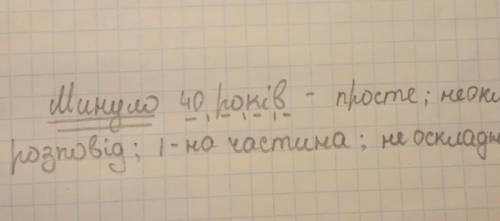 Минуло 40 років - просте; неокл
розповід; 1-на частина; не оскладн